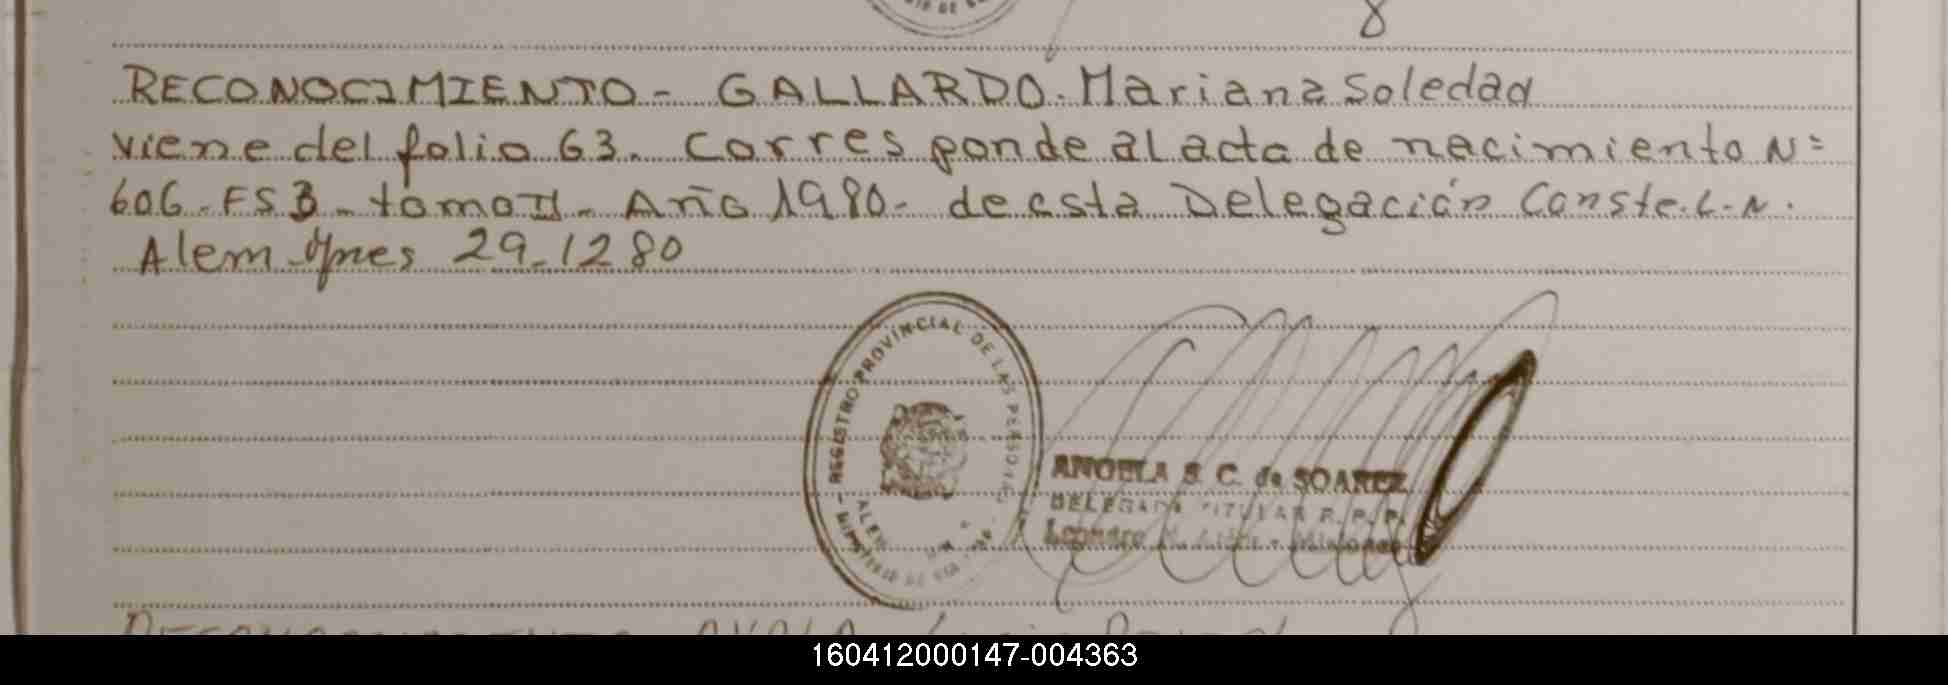 8
RECONOCIMIENTO - GALLARDO. Mariana Soledad
viene del folio 63. Corresponde al acta de nacimiento N=
606 - FS 3 - tomo II - Año 1980 - de esta Delegación Conste. L - N.
Alem Ynes 29-12 80
REGISTRO PROVINCIAL DE LAS PERSONAS
ALEM
ANGELA S. C. de SOAREZ
DELEGADA TITULAR R. P. P.
Leandro N. Alem - Misiones
160412000147-004363